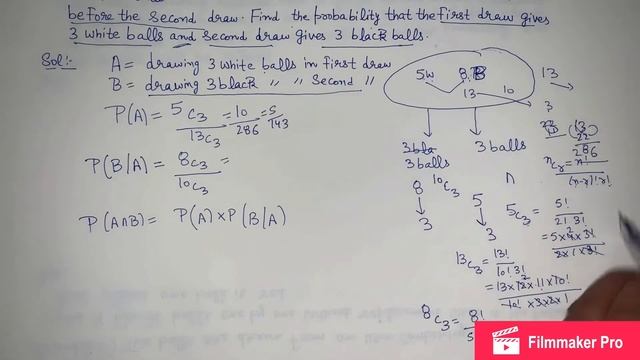 before the second draw. Find the probability that the first draw gives
3 white balls and second draw gives 3 black balls.
Sol:- A = drawing 3 white balls in first draw
B = drawing 3 black " " second "
P(A) = 5C3 / 13C3 = 10/286 = 5/143
P(B/A) = 8C3 / 10C3 =
P(A∩B) = P(A) × P(B/A)
5W 8B 13
13 10
3
3 balls 3 balls
8 10C3 n
3
5
3
13
22
286
nCr = n! / (n-r)! r!
5C3 = 5! / 2! 3!
= 5×4×3! / 2×1×3!
13C3 = 13! / 10! 3!
= 13×12×11×10! / 10! ×3×2×1
8C3 = 8!
Filmmaker Pro